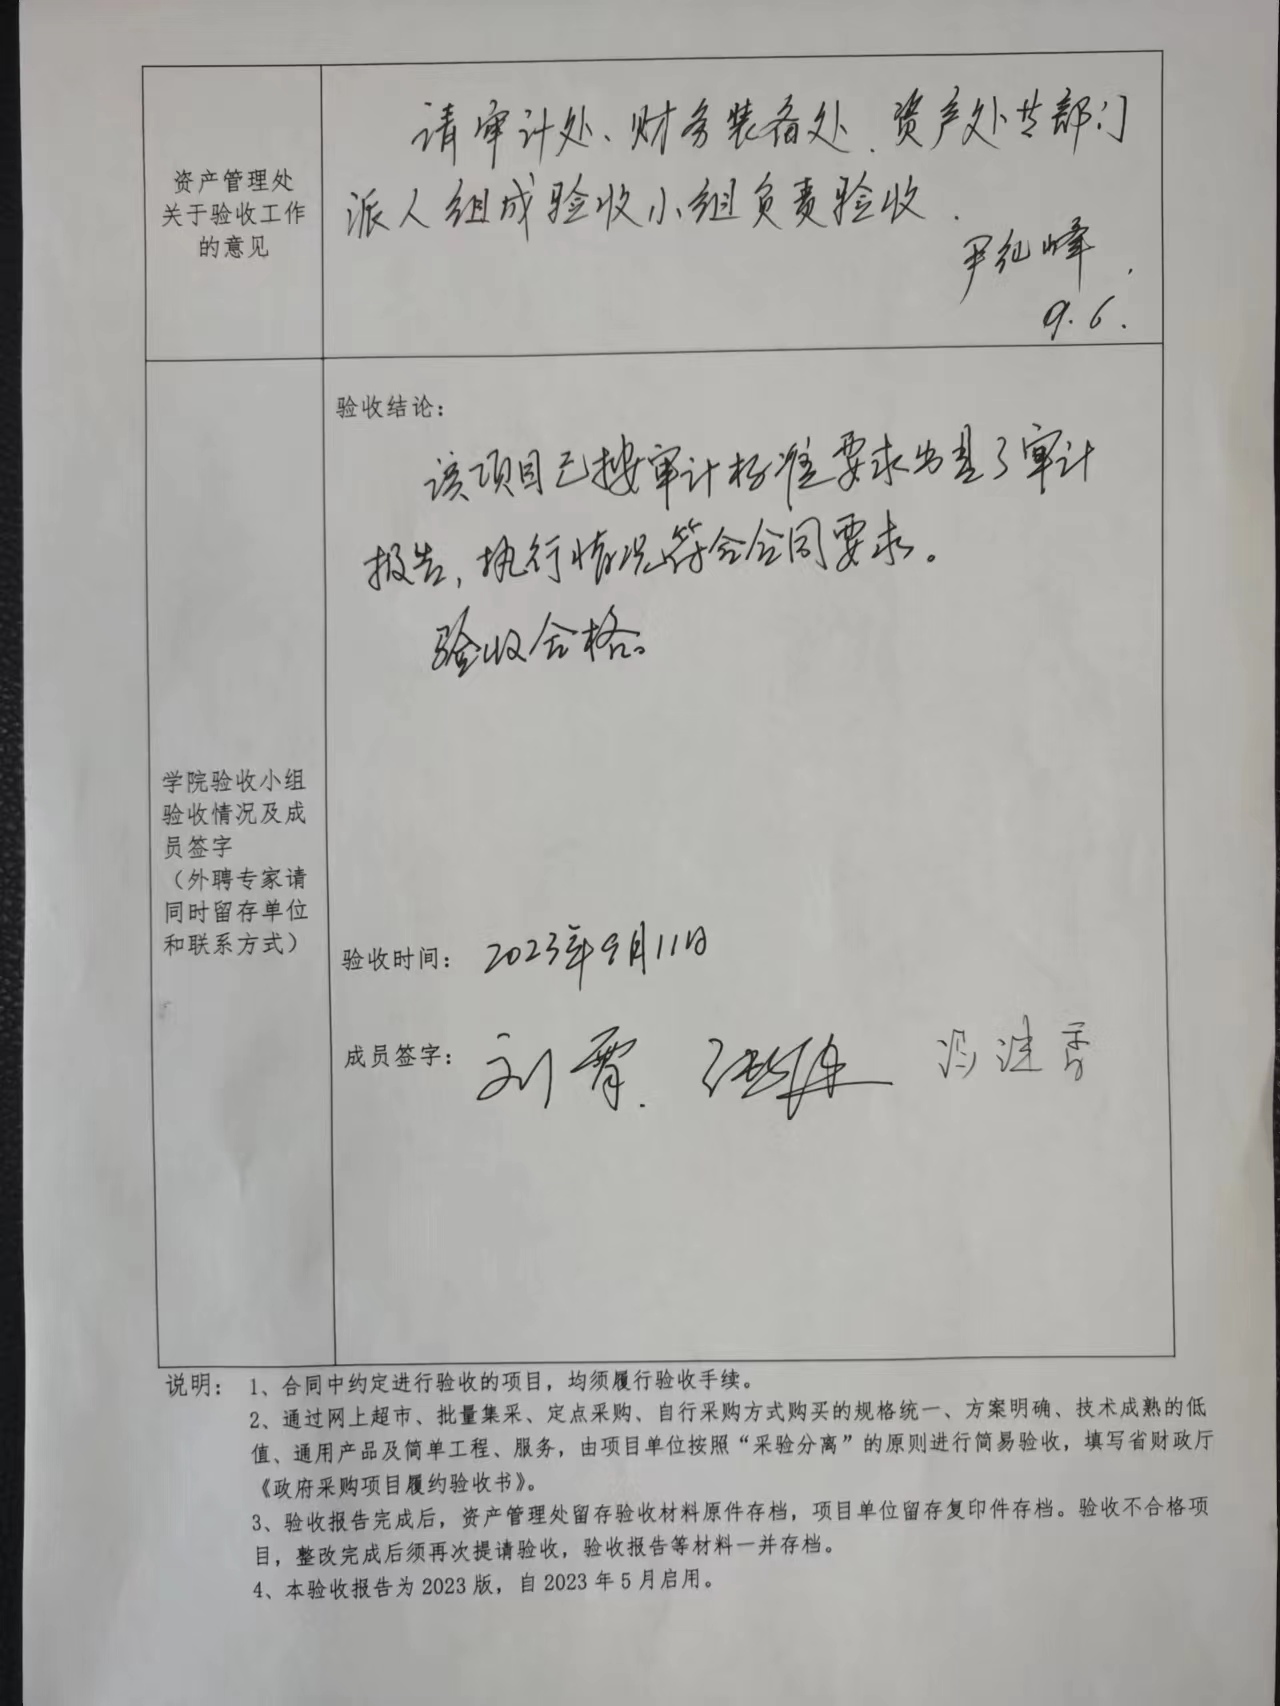 资产管理处
关于验收工作
的意见
请审计处、财务装备处、资产处共部门
派人组成验收小组负责验收.
尹红峰.
9.6.
学院验收小组
验收情况及成
员签字
（外聘专家请
同时留存单位
和联系方式）
验收结论：
该项目已按审计标准要求出具了审计
报告，执行情况符合合同要求。
验收合格。
验收时间： 2023年9月11日
成员签字： 刘霄.
说明： 1、合同中约定进行验收的项目，均须履行验收手续。
2、通过网上超市、批量集采、定点采购、自行采购方式购买的规格统一、方案明确、技术成熟的低
值、通用产品及简单工程、服务，由项目单位按照“采验分离”的原则进行简易验收，填写省财政厅
《政府采购项目履约验收书》。
3、验收报告完成后，资产管理处留存验收材料原件存档，项目单位留存复印件存档。验收不合格项
目，整改完成后须再次提请验收，验收报告等材料一并存档。
4、本验收报告为 2023 版，自 2023 年 5 月启用。